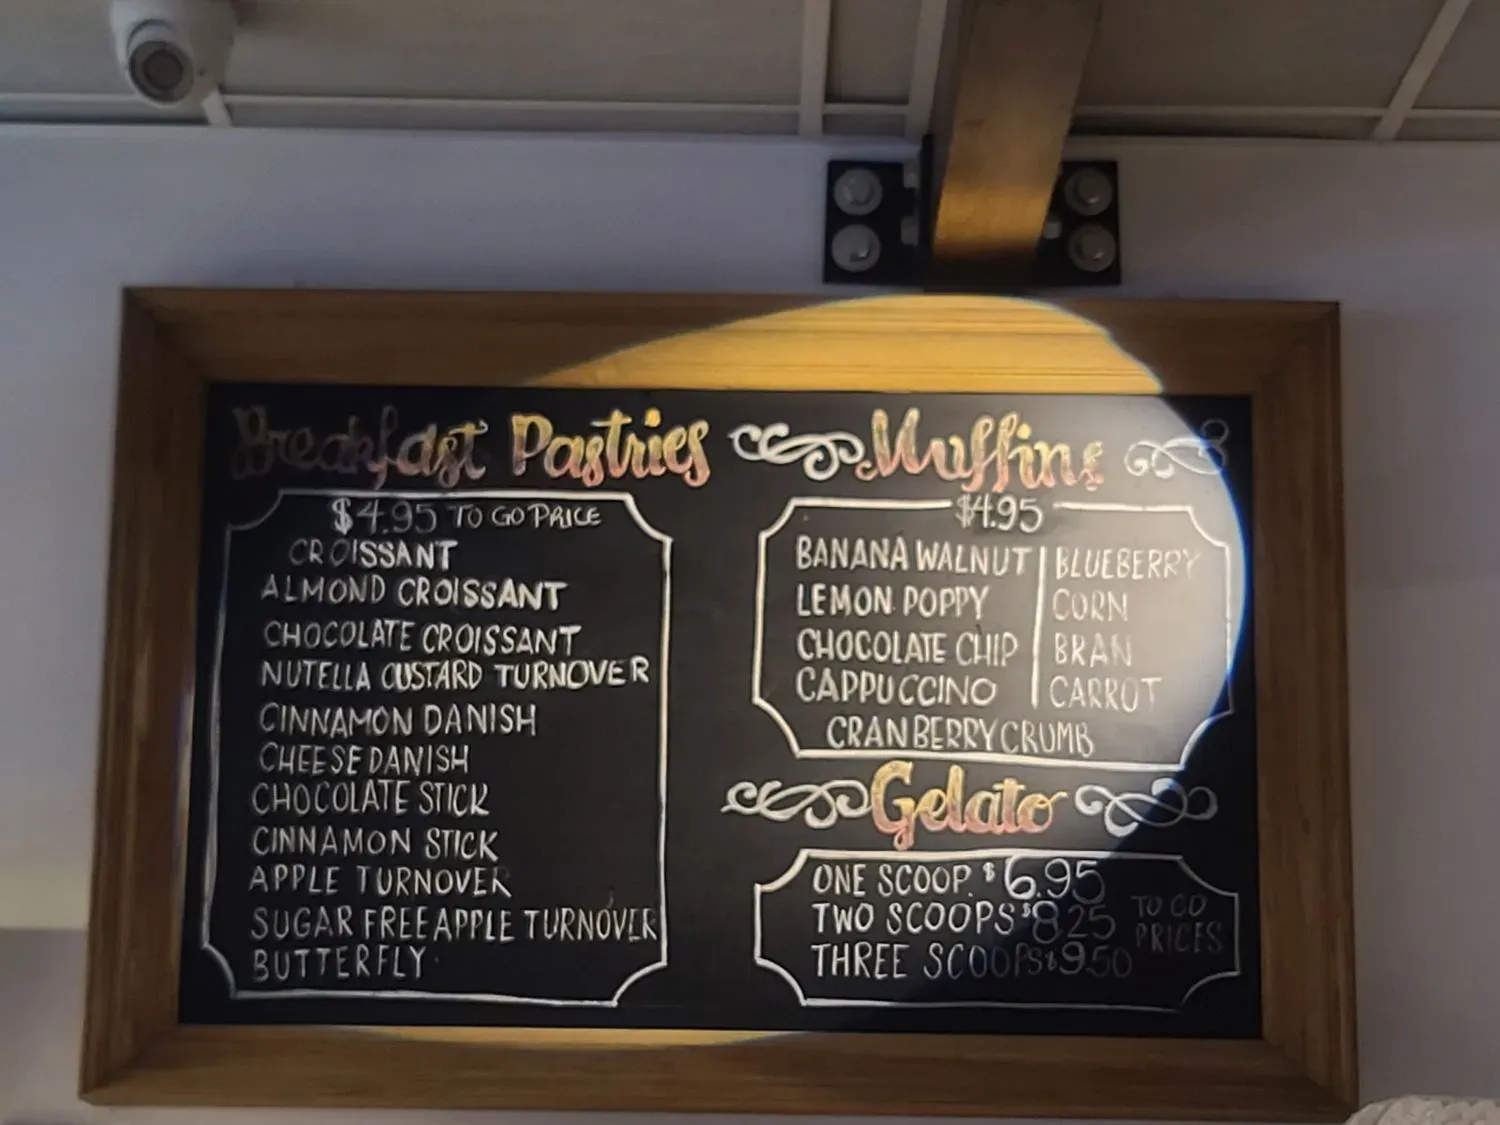 Breakfast Pastries
$4.95 TO GO PRICE
CROISSANT
ALMOND CROISSANT
CHOCOLATE CROISSANT
NUTELLA CUSTARD TURNOVER
CINNAMON DANISH
CHEESE DANISH
CHOCOLATE STICK
CINNAMON STICK
APPLE TURNOVER
SUGAR FREE APPLE TURNOVER
BUTTERFLY
Muffins
$4.95
BANANA WALNUT | BLUEBERRY
LEMON POPPY | CORN
CHOCOLATE CHIP | BRAN
CAPPUCCINO | CARROT
CRANBERRY CRUMB
Gelato
ONE SCOOP. $6.95
TWO SCOOPS $8.25
THREE SCOOPS $9.50
TO GO
PRICES